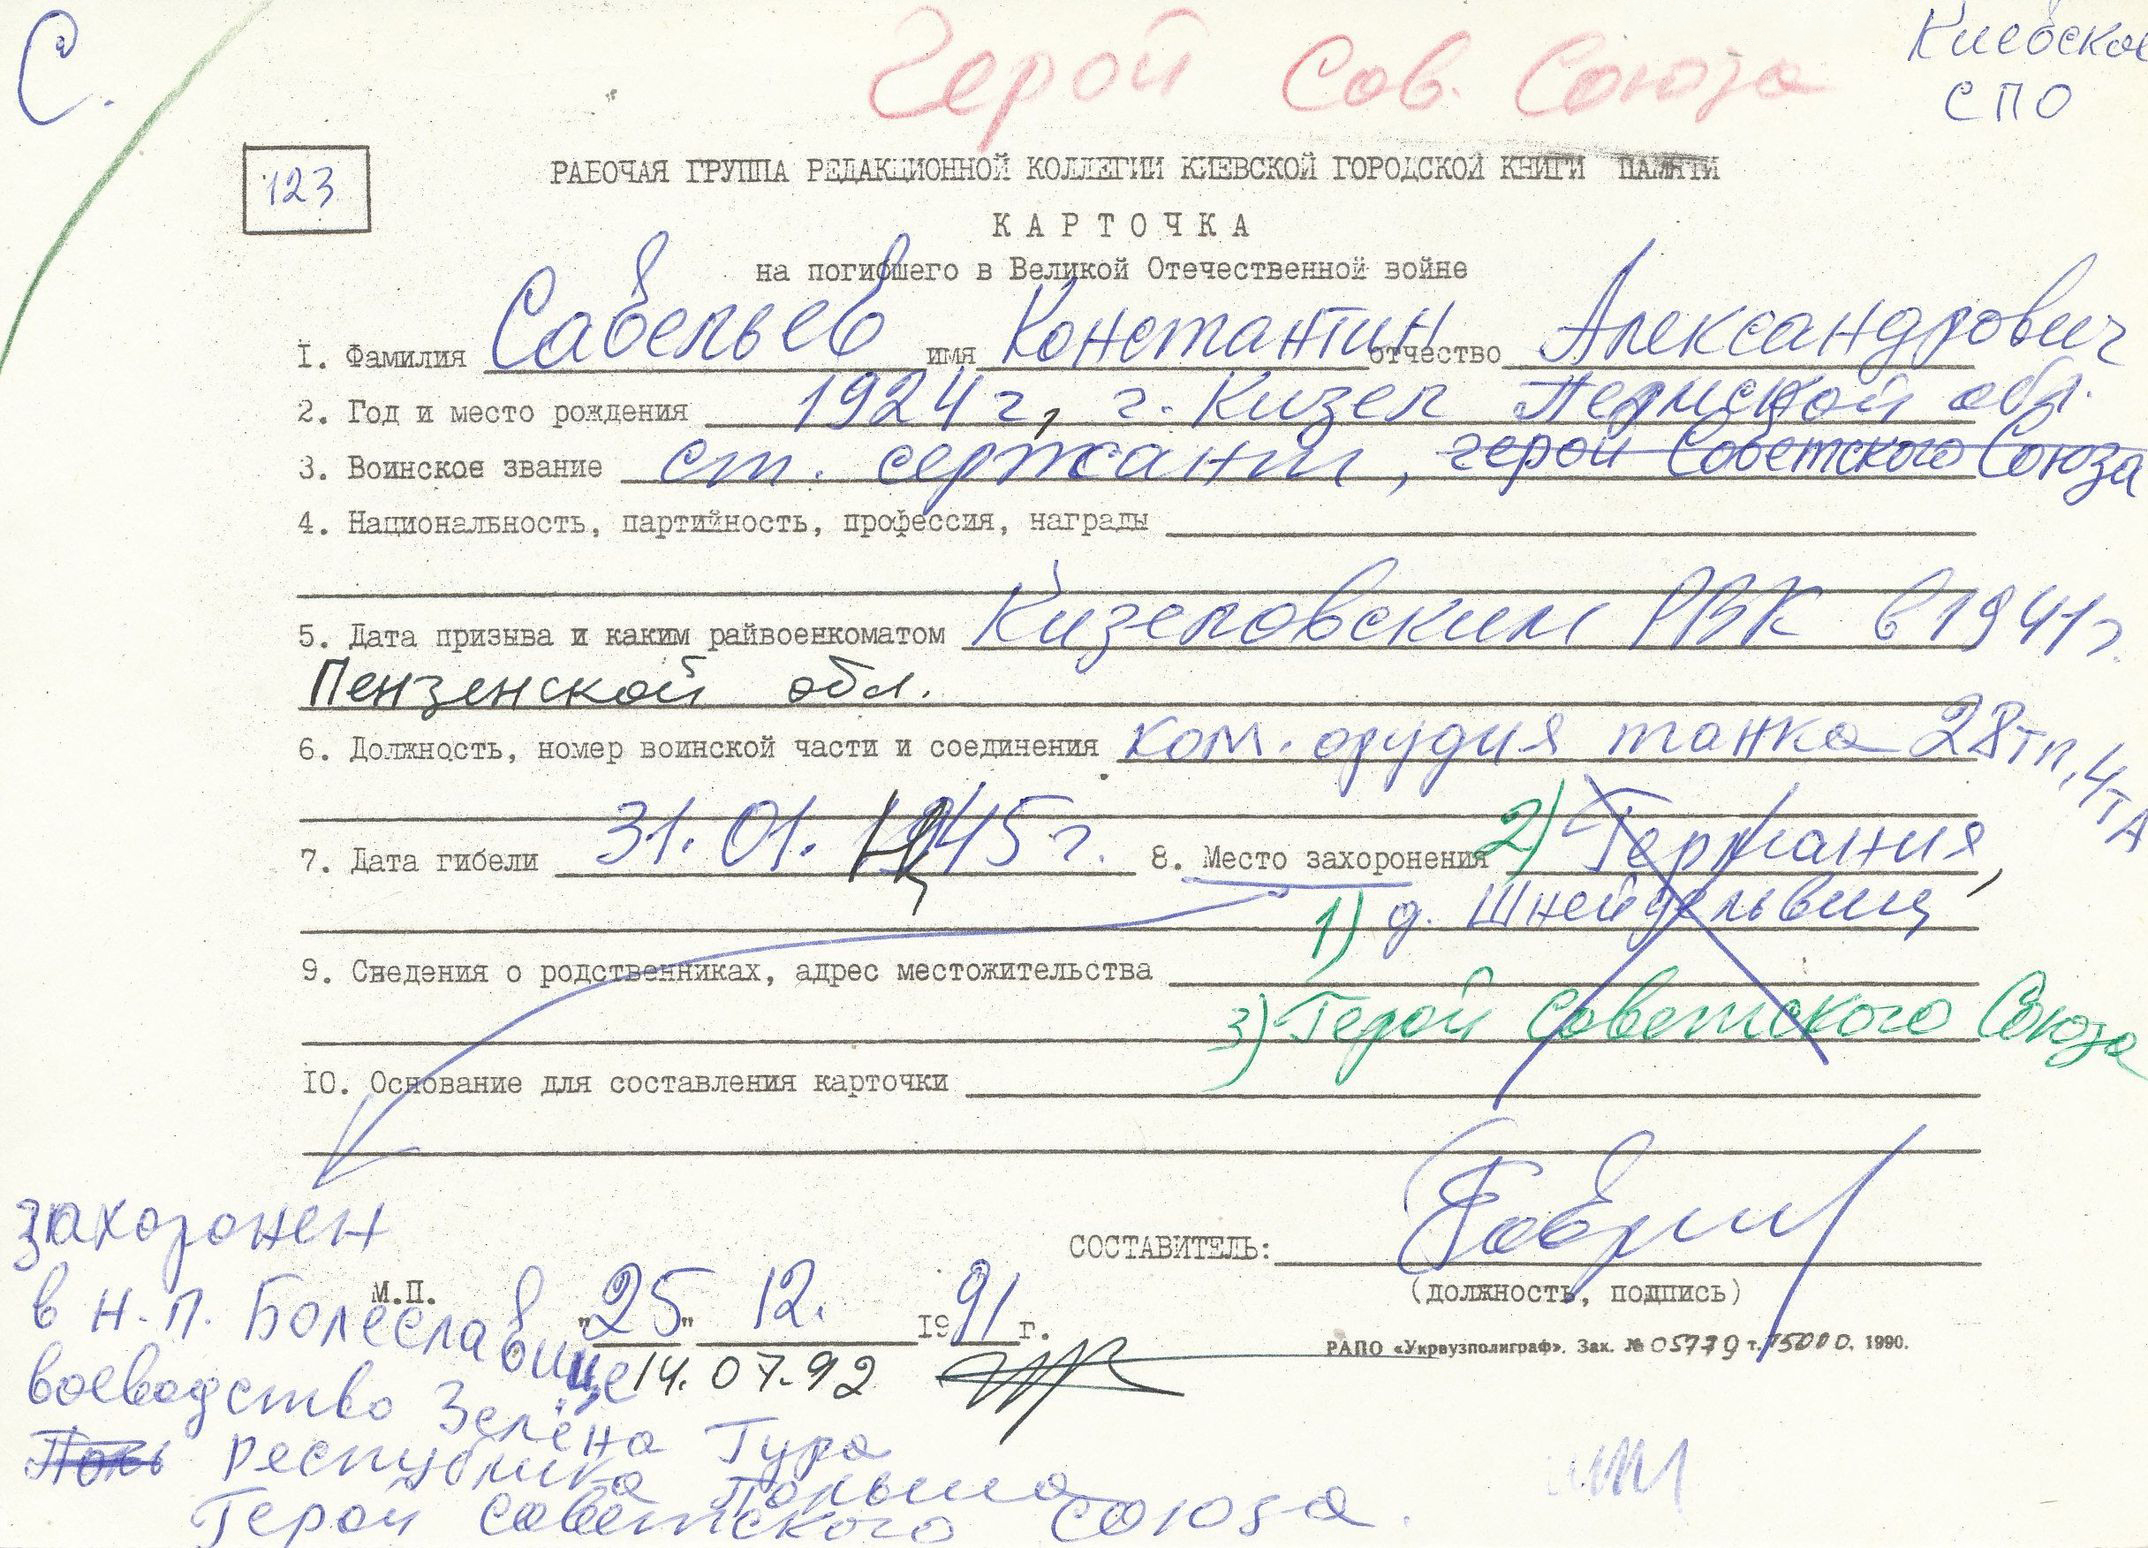 С.
Герой Сов. Союза
Киевское
СПО
123
РАБОЧАЯ ГРУППА РЕДАКЦИОННОЙ КОЛЛЕГИИ КИЕВСКОЙ ГОРОДСКОЙ КНИГИ ПАМЯТИ
КАРТОЧКА
на погибшего в Великой Отечественной войне
1. Фамилия Савельев имя Константин отчество Александрович
2. Год и место рождения 1924 г, г. Кизел Пермской обл.
3. Воинское звание ст. сержант, герой Советского Союза
4. Национальность, партийность, профессия, награды
5. Дата призыва и каким райвоенкоматом Кизеловским РВК в 1941 г.
Пензенской обл.
6. Должность, номер воинской части и соединения ком. орудия танка 28 тп, 4 ТА
7. Дата гибели 31.01.1945 г. 8. Место захоронения 2) Германия,
1) д. Шнейдельвиц
9. Сведения о родственниках, адрес местожительства
3) Герой Советского Союза
10. Основание для составления карточки
захоронен
в н.п. Болеславице
воеводство Зелёна Гура
Республика Польша
Герой Советского Союза.
СОСТАВИТЕЛЬ:
(должность, подпись)
М.П.
"25" 12. 1991 г.
14.07.92
РАПО «Укрвузполиграф». Зак. № 05779 т. 15000. 1990.